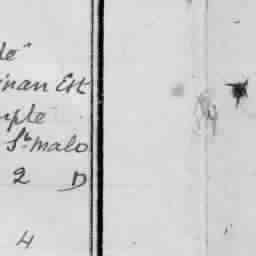 de"
inan Est
mple
St. Malo
2 D
4